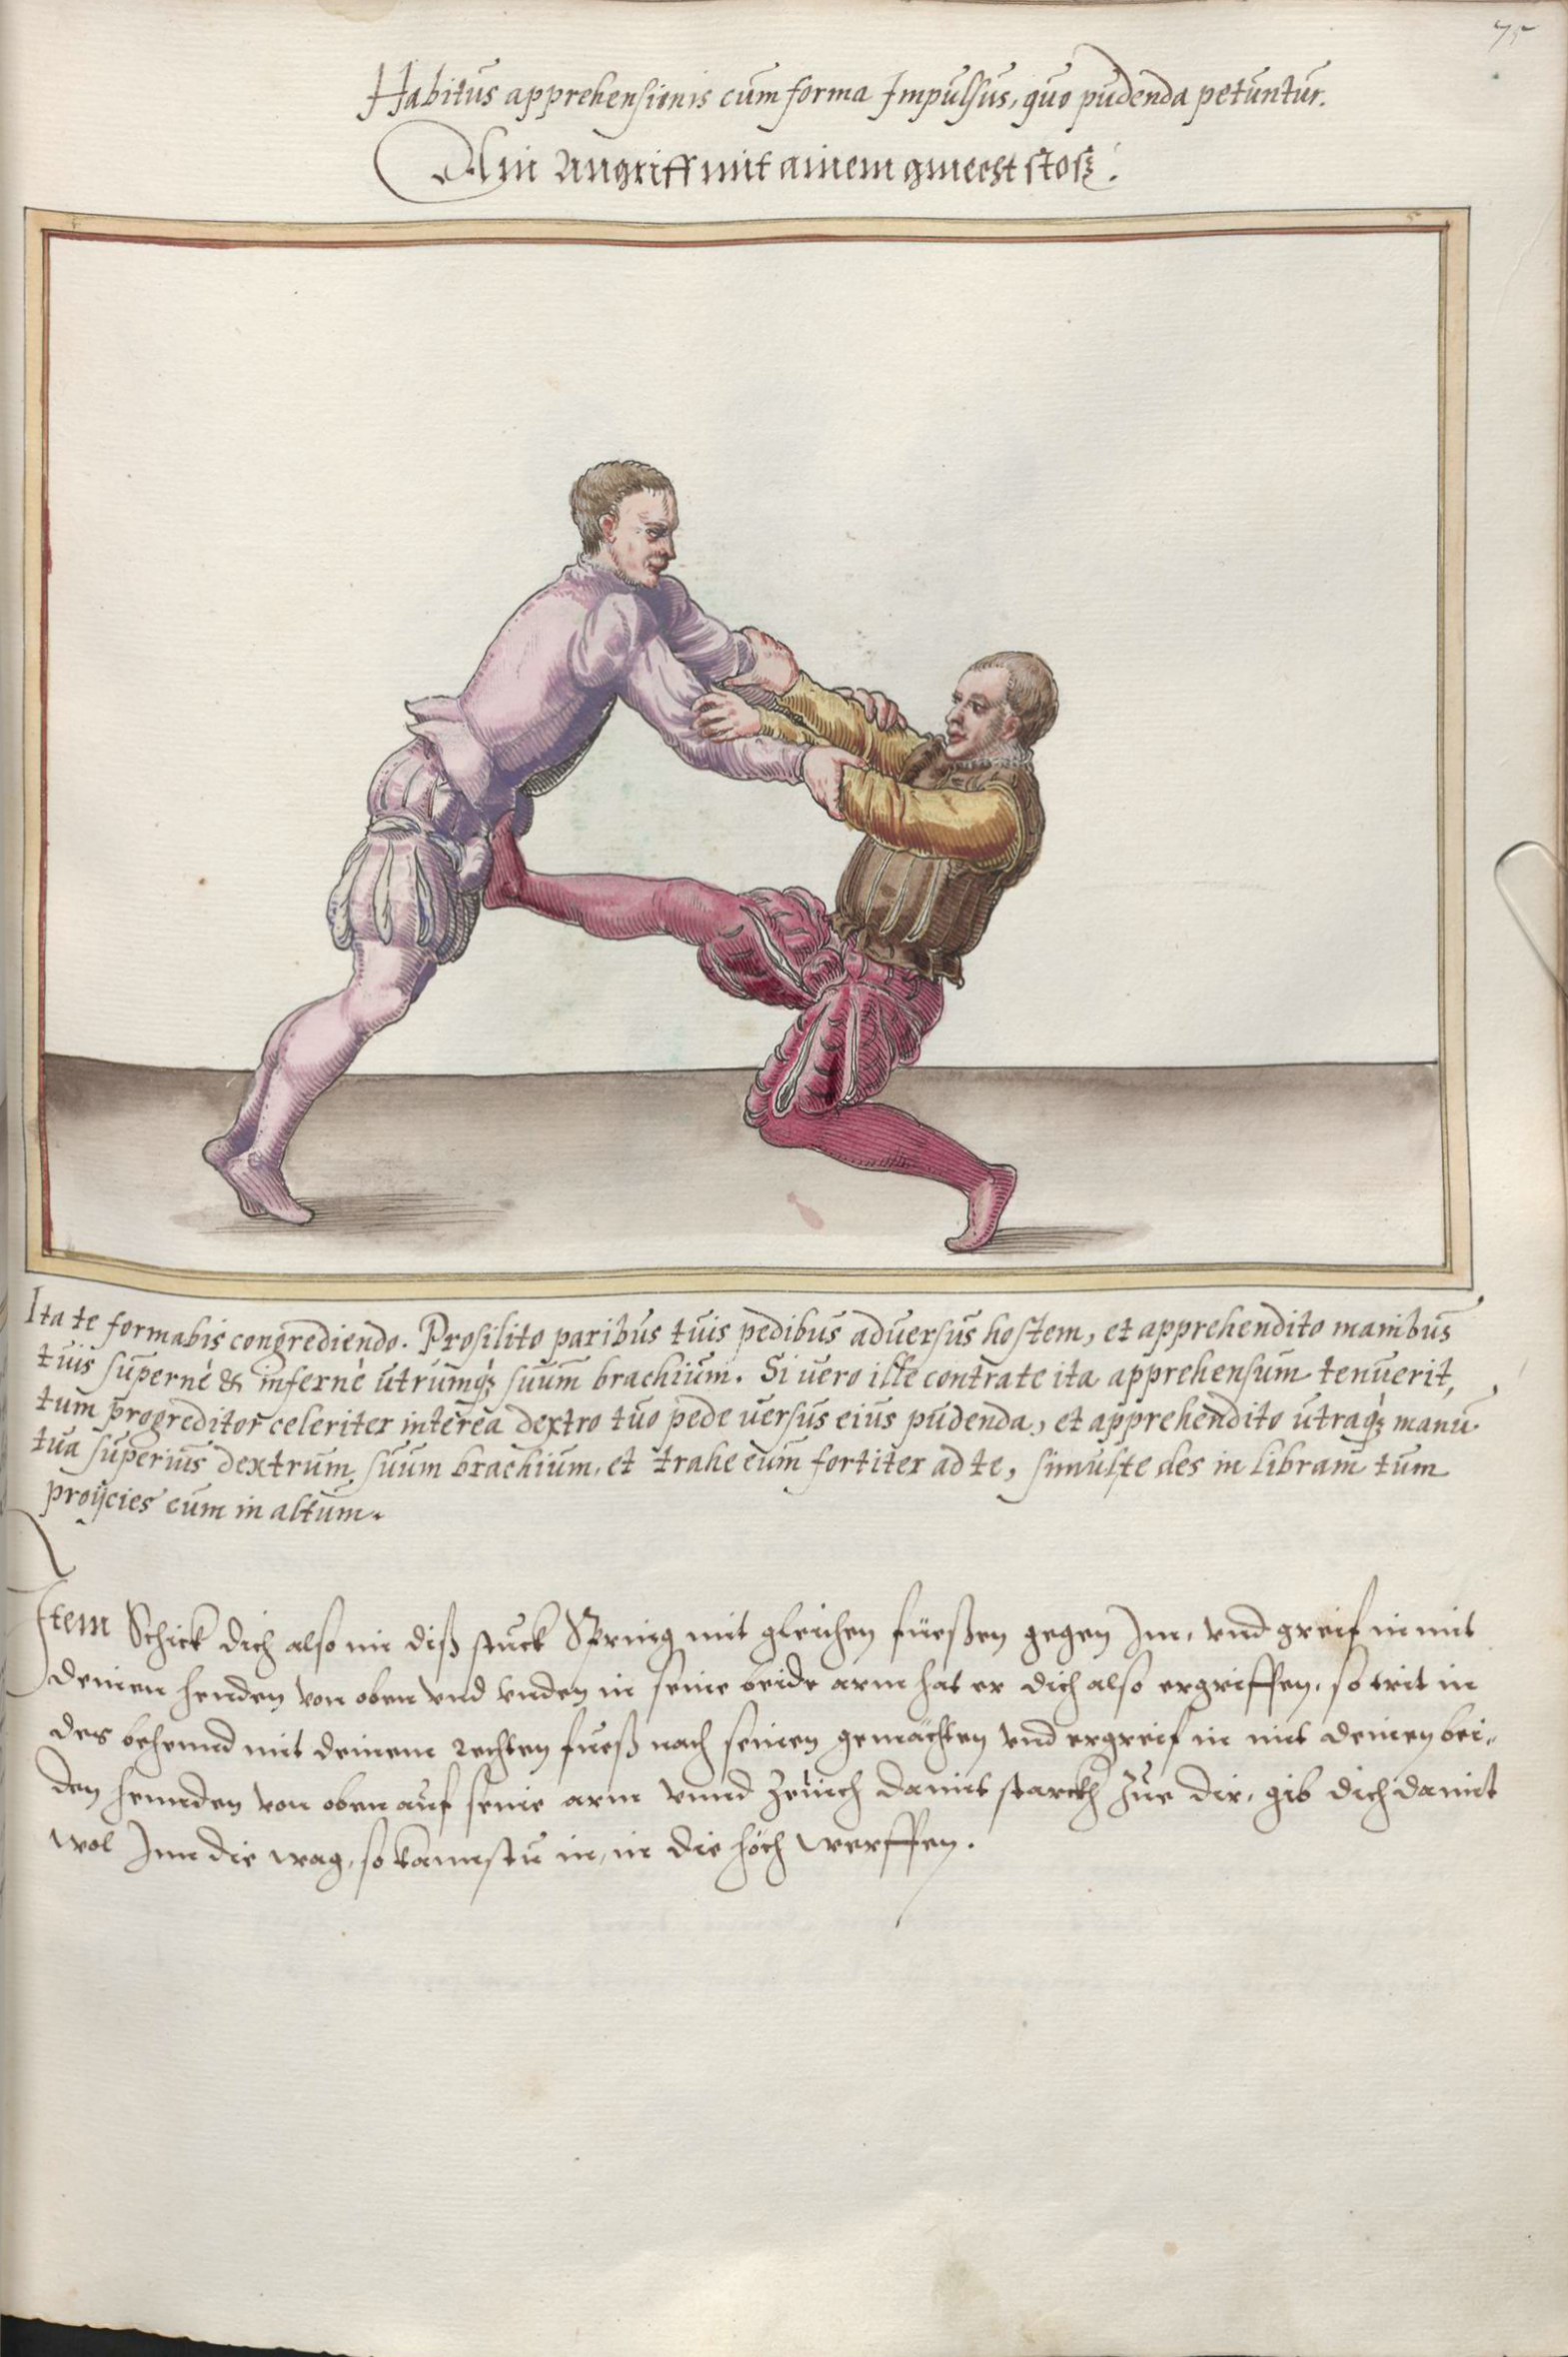 75
Habitus apprehensionis cum forma Impulsus, quo pudenda petuntur.
Ain Angriff mit ainem gmecht stosz.
Ita te formabis congrediendo. Prosilito paribus tuis pedibus aduersus hostem, et apprehendito manibus
tuis supernè & infernè utrumq; suum brachium. Si uero ille contra te ita apprehensum tenuerit,
tum progreditor celeriter interea dextro tuo pede uersus eius pudenda, et apprehendito utraq; manu
tua superius dextrum suum brachium, et trahe eum fortiter ad te, simul te des in libram tum
proijcies eum in altum.
Item Schick dich also in diß stuck Spring mit gleichen füeßen gegen Im, vnd greif in mit
deinen henden von oben vnd vnden in seine beide arm hat er dich also ergriffen, so trit in
des behennd mit deinem rechten fueß nach seinen gemächten vnd ergreif in mit deinen bei„
den hennden von oben auf seine arm vnnd zeuch damit starckh zue dir, gib dich damit
wol Inn die wag, so kannstu in, in die höch werffen.